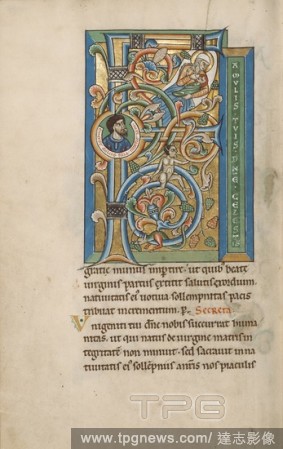 F
AMULIS TUIS DNE CELEST
gratie munus inptire. ut quib beate
uirginis partus extitit salutis exordium.
natiuitatis ei uotiua sollempnitas pacis
tribuat incrementum. p. Secreta.
Vnigeniti tui dne nobis succurrat huma
nitas. ut qui natus de uirgine matris in
tegritatem non minuit. sed sacrauit. in na
tiuitatis ei sollepniis antis nos piaculis
TPG
www.tpgnews.com/達志影像